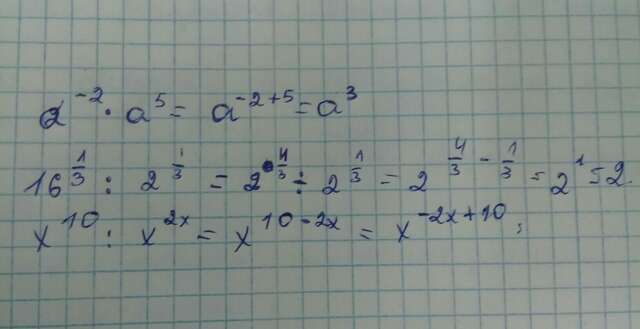 a⁻² · a⁵ = a⁻²⁺⁵ = a³
16^(1/3) : 2^(1/3) = 2^(4/3) ÷ 2^(1/3) = 2^(4/3 - 1/3) = 2¹ = 2.
x¹⁰ : x^(2x) = x^(10-2x) = x^(-2x+10);